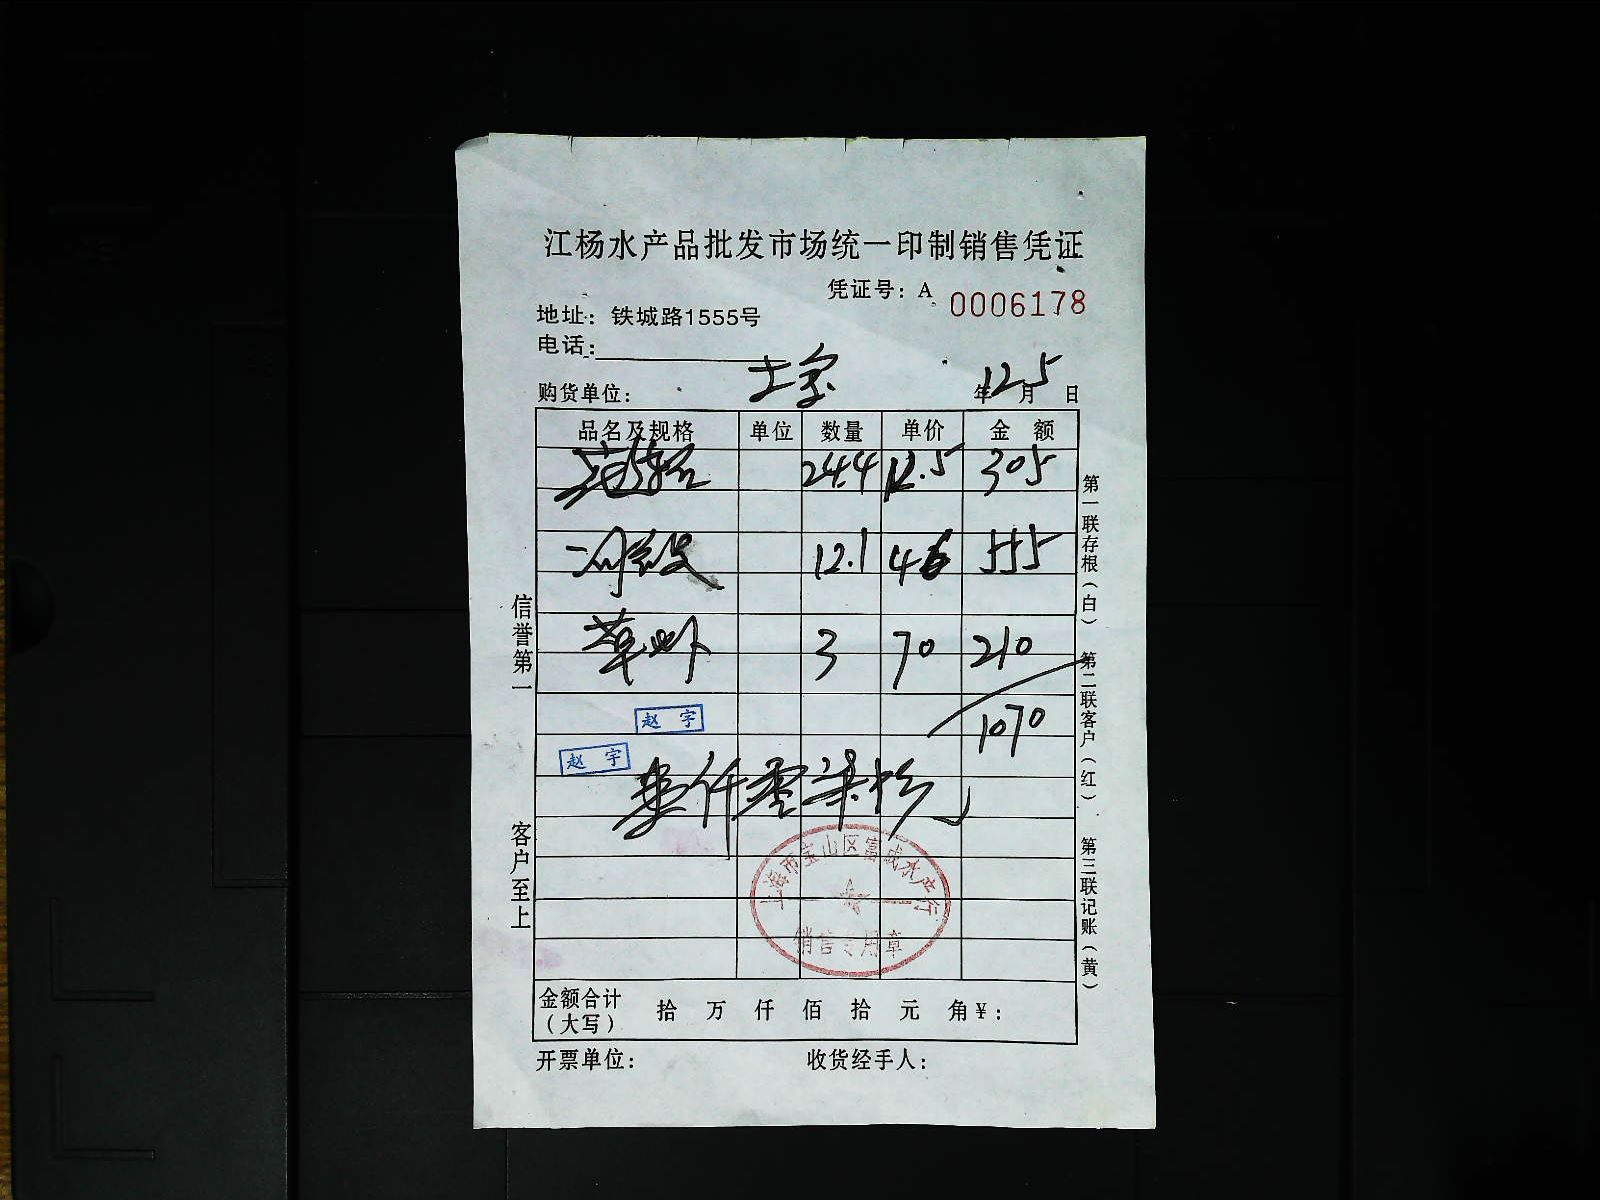 江杨水产品批发市场统一印制销售凭证
凭证号：A 0006178
地址：铁城路1555号
电话：
购货单位： 年 月 日
12.5
品名及规格 单位 数量 单价 金额
24.4 12.5 305
12.1 46 555
草虾 3 70 210
1070
赵宇
赵宇
壹仟零柒拾元
上海市宝山区富成水产行
销售专用章
金额合计（大写） 拾 万 仟 佰 拾 元 角 ¥：
开票单位： 收货经手人：
信誉第一
客户至上
第一联存根（白）
第二联客户（红）
第三联记账（黄）